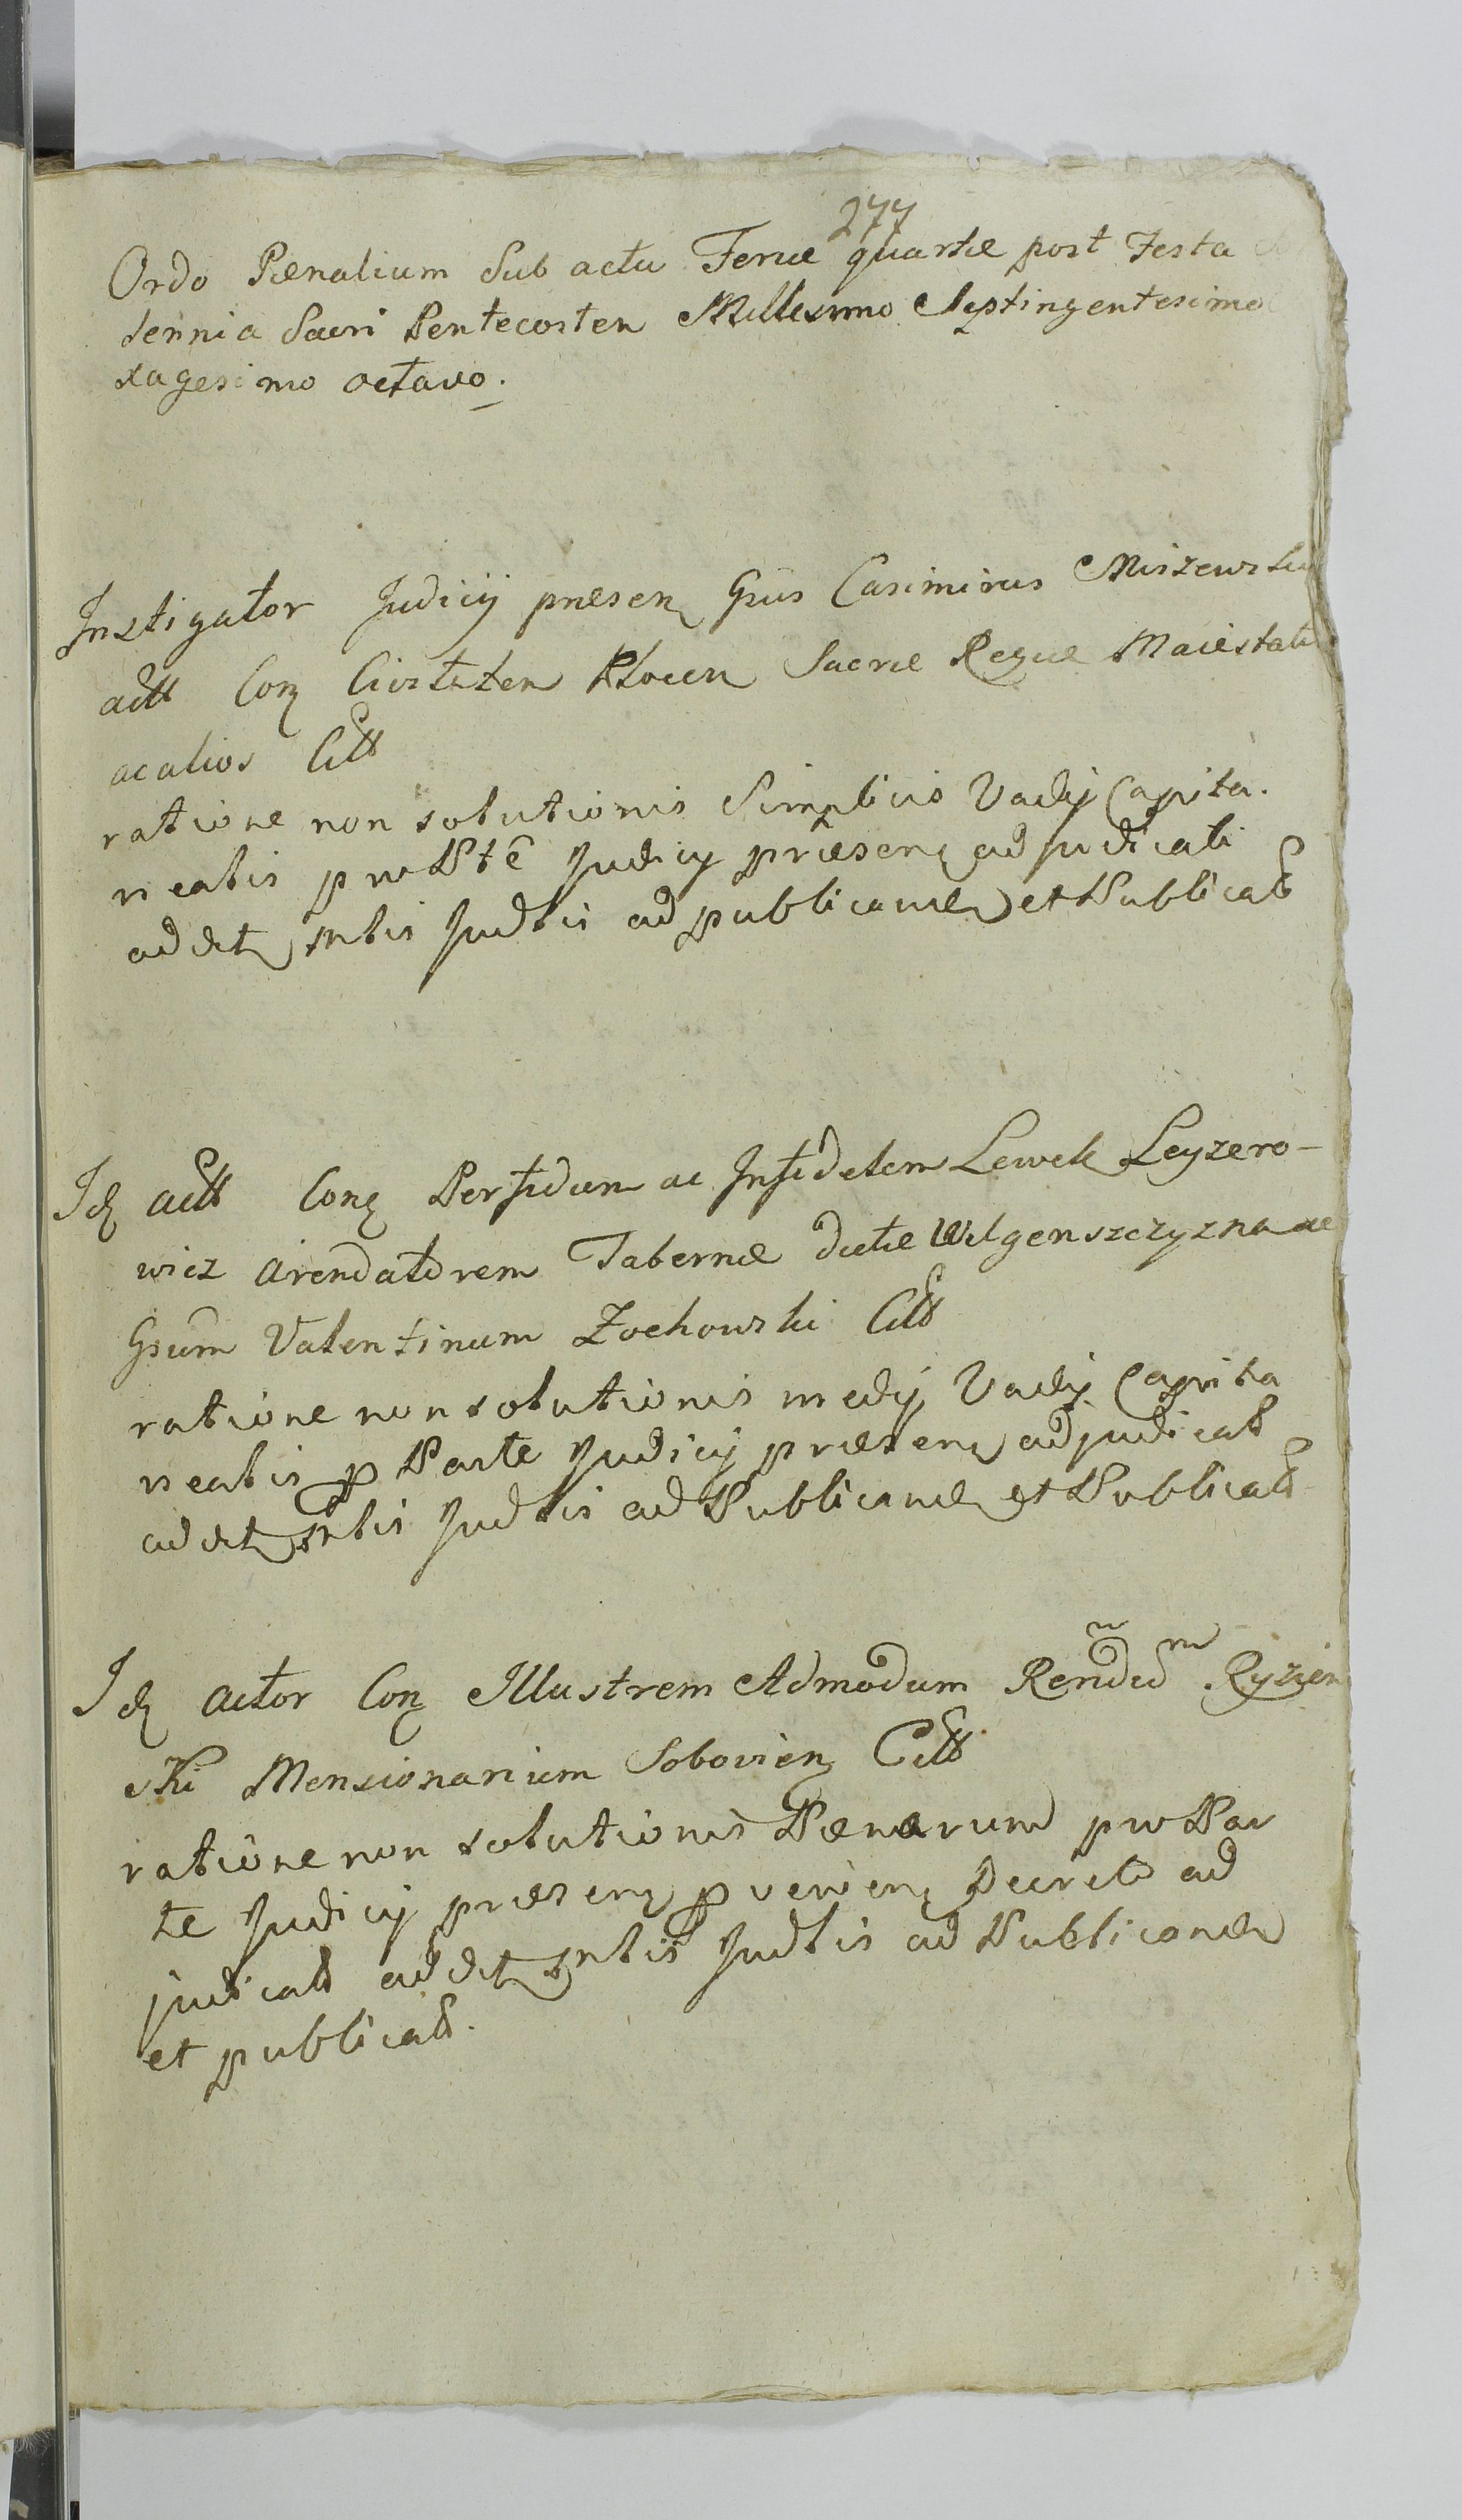 277
Ordo Pænalium Sub actu Feriæ quartæ post Festa
lennia Sacri Pentecosten Millesimo Septingentesimo
xagesimo octavo.
Instigator Judicij præsen Gsus Casimirus Miszewski
actt Con Civitaten Plocen Sacræ Regiæ Maiestatis
ac alios Citt
ratione non solutionis Simplicis Vadij Capita-
nealis pro Pte Judicij præsen adjudicati
ad Judtis ad publicand et Publicatt
Id actt Con Perfidum ac Infidelem Lewek Leyzero-
wicz Arendatorem Tabernæ dictæ Wilgenszczyzna ac
Gsum Valentinum Zochowski Citt
ratione non solutionis medij Vadij Capita
nealis p Parte Judicij præsen adjudicatt
ad Judtis ad Publicand et Publicatt
Id actor Con Illustrem Admodum Rendum Ryzien
ski Mensionarium Sobovien Citt
ratione non solutionis Pænarum pro Par
te Judicij præsen pvenien Decreto ad
judicatt ad Judtis ad Publicand
et publicatt.